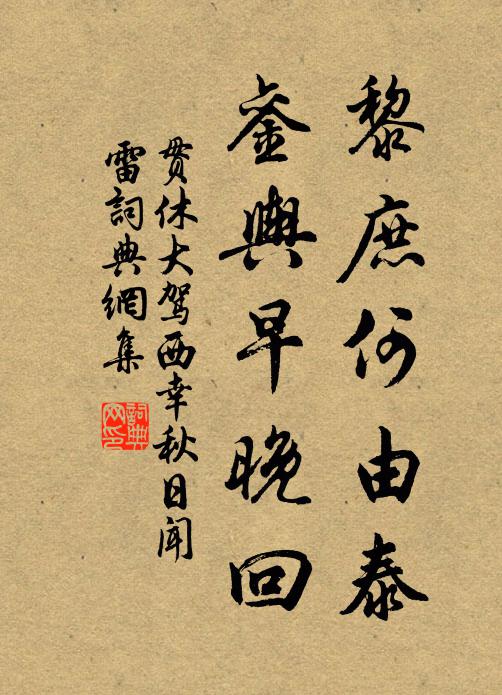 黎庶何由泰
銮輿早晚回
贯休大驾西幸秋日闻
雷詞典網集
詞典网印